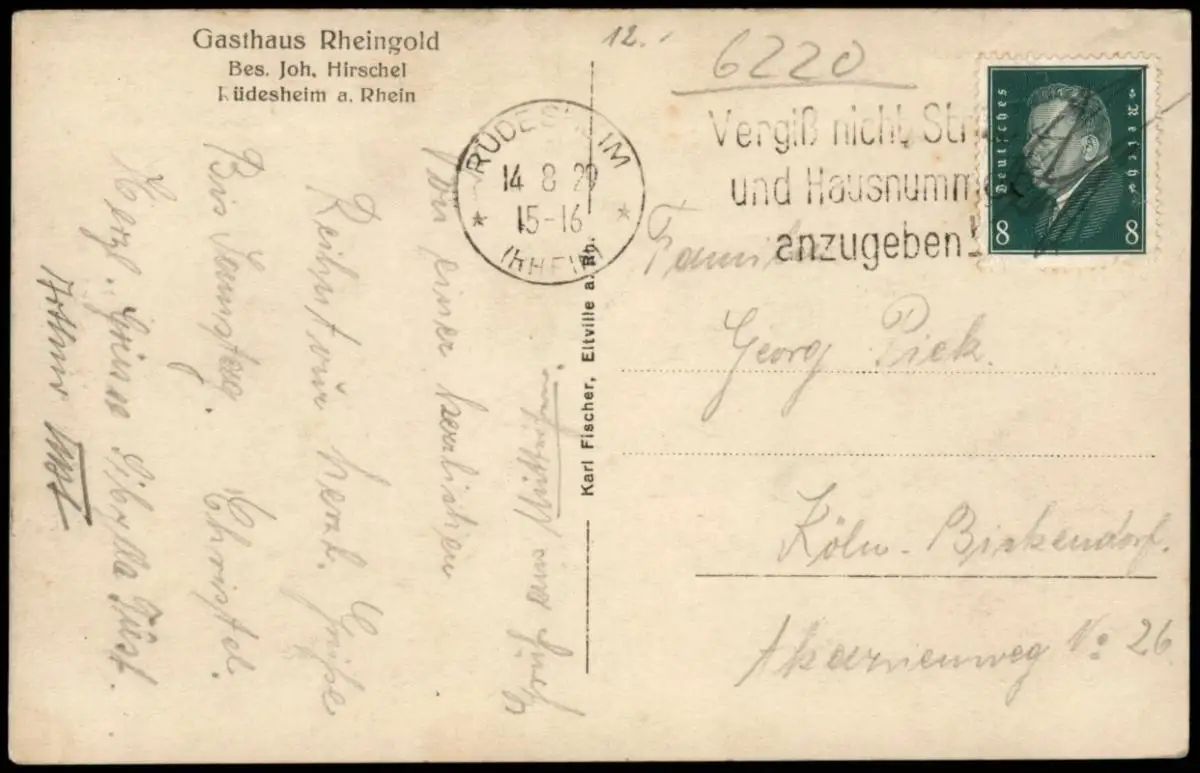 Gasthaus Rheingold
Bes. Joh. Hirschel
Rüdesheim a. Rhein
12.
6220
RÜDESHEIM
14 8 29
15-16
(RHEIN)
Vergiß nicht, Str
und Hausnumme
anzugeben!
Deutsches Reich
8 8
Familie
Georg Pick.
Köln-Birkendorf.
Akazienweg No 26
Karl Fischer, Eltville a. Rh.
Von einer herzlichen
herzl. Grüße
Bis Samstag. Christel.
Herzl. Grüße Sibylla Füst.
Arthur